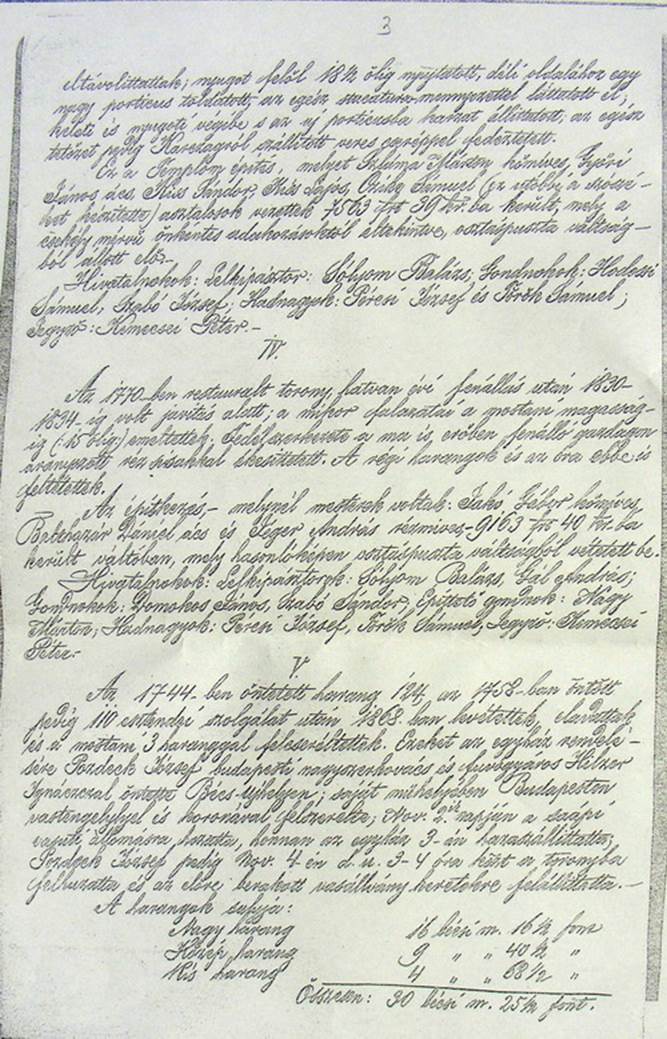 3
eltávolíttattak; nyugot felől 18½ ölig nyujtatott, déli oldalához egy
nagy porticus toldatott, az egész stucatura mennyezettel láttatott el;
keleti és nyugoti végébe s az uj porticusba karzat állíttatott; az egész
tetőzet pedig Karczagról szállított veres cseréppel fedeztetett.
Ez a Templom építés, melyet Márton kőmíves, Győri
János ács, Kiss Sándor, Kiss Lajos, Sámuel (ez utóbbi a
ket készítette) asztalosok vezettek 7563 frt 39 kr.ba került, mely a
csekély mérvű önkéntes adakozásoktól eltekintve, osztáspuszta váltság-
ból állott elő.-
Hivatalnokok: Lelkipásztor: Sólyom Balázs, Gondnokok:
Sámuel, Szabó József; Hadnagyok: Pércsi József és Török Sámuel;
Jegyző: Kemecsei Péter.-
IV.
Az 1770-ben restaurált torony, hatvan évi fenállás után 1830-
1834-ig volt javítás alatt; a mikor falazatai a mostani magasság-
ig (:15 ölig:) emeltettek. Fedélszerkezete a ma is erőben fenálló gazdagon
aranyozott réz sisakkal ékesíttetett. A régi harangok és az óra ebbe is
feltétettek.
Az építkezés,- melynél mesterek voltak: Jakó Gábor kőmíves,
Dániel ács és Jéger András rézmíves,- 9163 frt 40 kr. ba
került váltóban, mely hasonlóképen osztáspuszta váltságból vétetett be.
Hivatalnokok: Lelkipásztorok: Sólyom Balázs, Gál András;
Gondnokok: Domokos János, Szabó Sándor, Építtető gondnok: Nagy
Márton; Hadnagyok: Pércsi József, Török Sámuel, Jegyző: Kemecsei
Péter.-
V.
Az 1744-ben öntetett harang 124, az 1758-ban öntött
pedig 110 esztendei szolgálat után 1868.ban levétettek, eladattak
és a mostani 3 haranggal felcseréltettek. Ezeket az egyház rendelé-
sére Pozdech József budapesti nagyszerkovács és fuvógyáros Hilzer
Ignáczczal öntette Bécs-Ujhelyen; saját műhelyében Budapesten
vastengelylyel és koronával felszerelte; Nov. 2ik napján a szapi
vaputi állomásra hozatta, honnan az egyház 3-án hazaszállíttatta;
Pozdech József pedig Nov. 4 én d. u. 3-4 óra közt a toronyba
felhuzatta és az előre berakott vasállvány keretekre felállíttatta.-
A harangok sulyja:
Nagy harang 16 bécsi m. 16½ font
Közép harang 9 „ „ 40½ „
Kis harang 4 „ „ 68½ „
Összesen: 30 bécsi m. 25½ font.